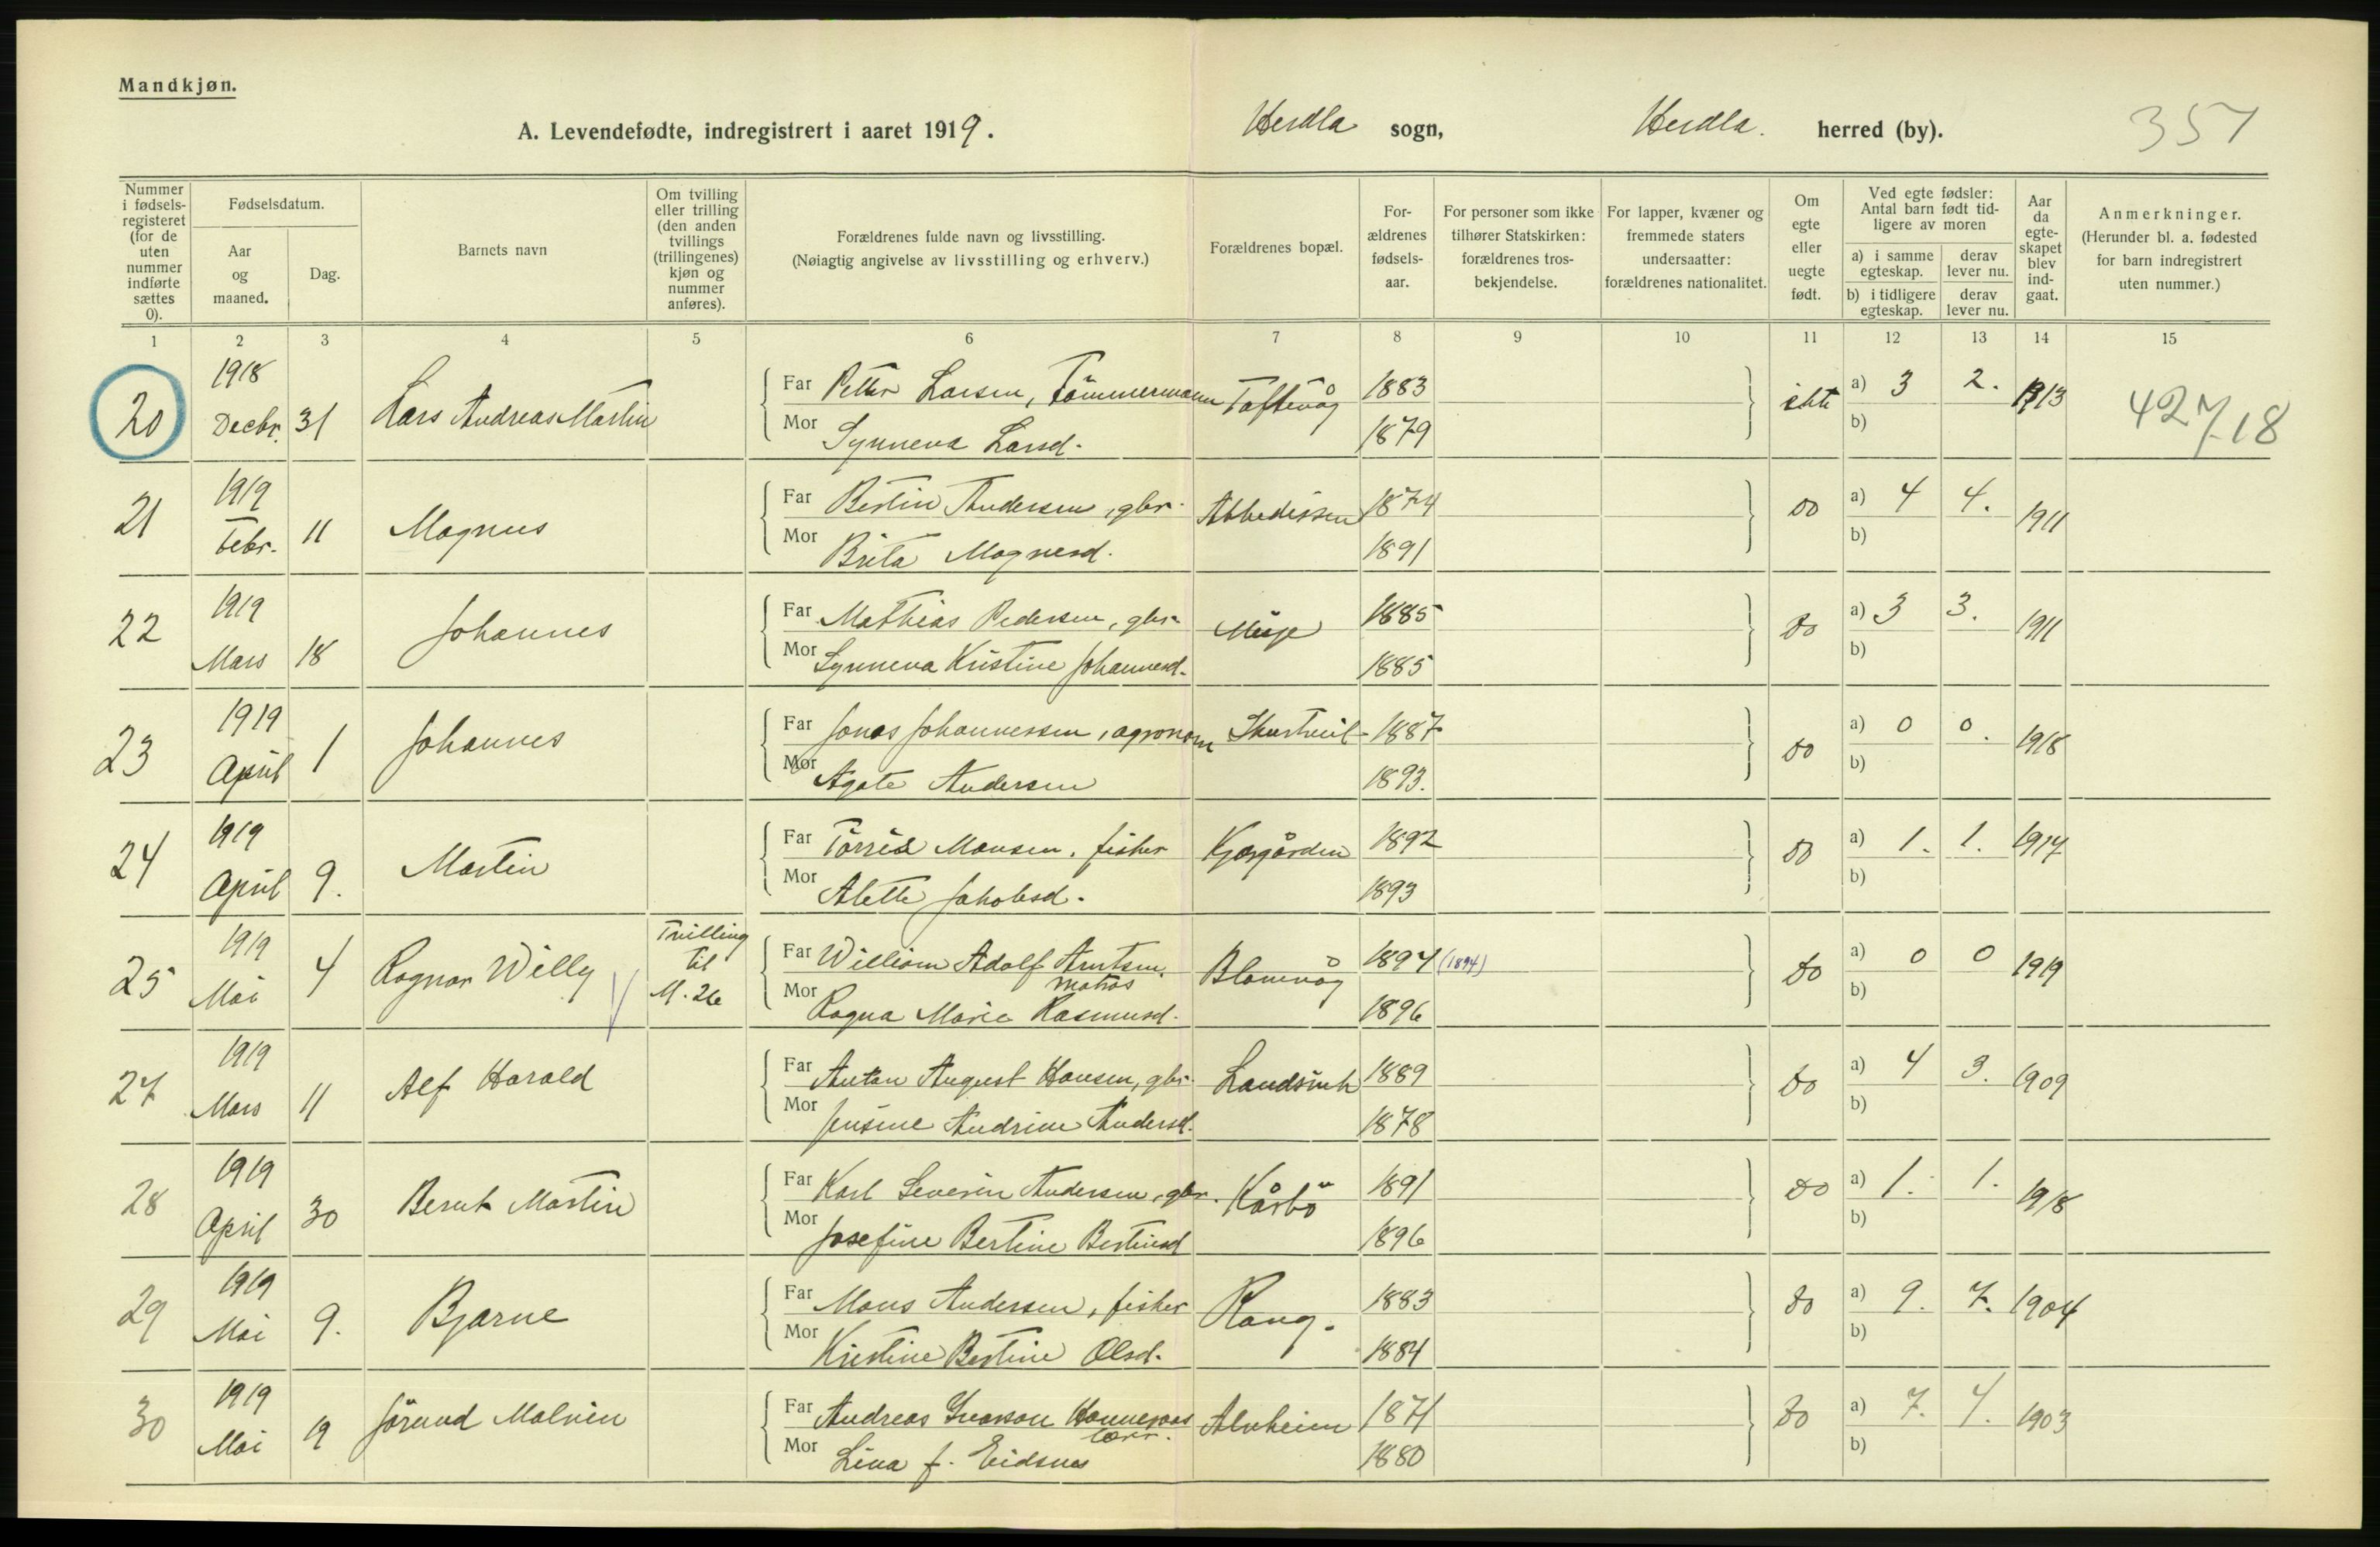 Mandkjøn.
A. Levendefødte, indregistrert i aaret 1919. Herdla sogn, Herdla. herred (by). 351
Nummer i fødselsregisteret (for de uten nummer indførte sættes 0).
Fødselsdatum.
Aar og maaned.
Dag.
Barnets navn
Om tvilling eller trilling (den anden tvillings (trillingenes) kjøn og nummer anføres).
Forældrenes fulde navn og livsstilling.
(Nøiagtig angivelse av livsstilling og erhverv.)
Forældrenes bopæl.
Forældrenes fødselsaar.
For personer som ikke tilhører Statskirken: forældrenes trosbekjendelse.
For lapper, kvæner og fremmede staters undersaatter: forældrenes nationalitet.
Om egte eller uegte født.
Ved egte fødsler: Antal barn født tidligere av moren
a) i samme egteskap. derav lever nu.
b) i tidligere egteskap. derav lever nu.
Aar da egteskapet blev indgaat.
Anmerkninger.
(Herunder bl. a. fødested for barn indregistrert uten nummer.)
1 2 3 4 5 6 7 8 9 10 11 12 13 14 15
20 1918 Decbr. 31 Lars Andreas Martin
Far Petter Larsen, Tömmermann Toftevåg 1883 ekte a) 3 2. 1913 427/18
Mor Synneva Larsd. 1879 b)
21 1919 Febr. 11 Magnus
Far Bertin Andersen, gbr. Abbedissen 1874 do a) 4 4. 1911
Mor Brita Magnesd. 1891 b)
22 1919 Mars 18 Johannes
Far Mathias Pedersen, gbr. 1885 do a) 3 3. 1911
Mor Synneva Kristine Johannesd. 1885 b)
23 1919 April 1 Johannes
Far Jonas Johannessen, agronom 1887 do a) 0 0. 1918
Mor Agate Andersen 1893. b)
24 1919 April 9. Martin
Far Monsen, fisker 1892 do a) 1. 1. 1917
Mor Alette Jakobsd. 1893 b)
25 1919 Mai 4 Ragnar Willy Tvilling til M. 26
Far William Adolf Arntsen, matros Blomvåg 1894 (1894) do a) 0 0 1919
Mor Ragna Marie Rasmusd. 1896 b)
27 1919 Mars 11 Alf Harald
Far Anton August Hansen, gbr. Landsvik 1889 do a) 4 3. 1909
Mor Jensine Andrine Andersd. 1878 b)
28 1919 April 30 Bernt Martin
Far Karl Severin Andersen, gbr. Kårbö 1891 do a) 1. 1. 1918
Mor Josefine Bertine Bertinsd 1896 b)
29 1919 Mai 9. Bjarne
Far Mons Andersen, fisker Rong. 1883 do a) 9. 7. 1904
Mor Kristine Bertine Olsd. 1884 b)
30 1919 Mai 19 Jörund Malvin
Far Andreas Ivarson Hannesaas lærer. Alvheim 1871 do a) 7. 7. 1903
Mor Lina f. Eidsnes 1880 b)